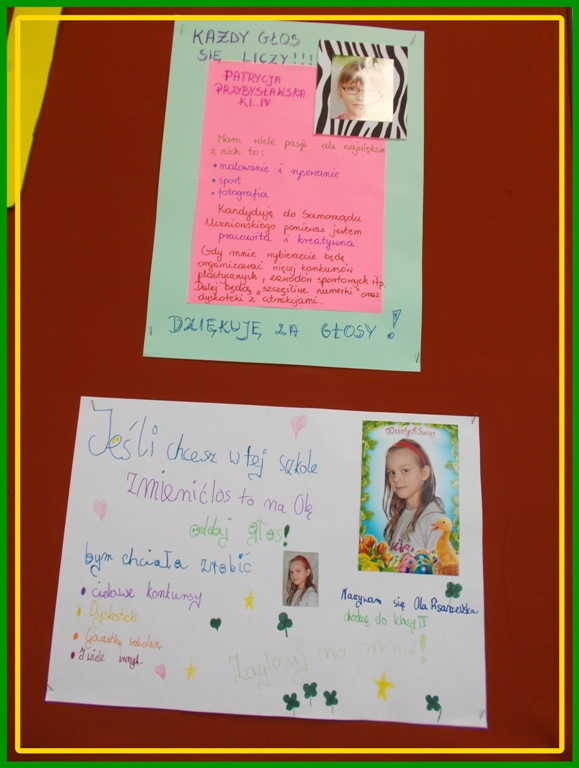 KAŻDY GŁOS
SIĘ LICZY!!!
PATRYCJA
PRZYBYSŁAWSKA
KL.IV
Mam wiele pasji ale największe
z nich to:
• malowanie i rysowanie
• sport
• fotografia
Kandyduję do Samorządu
Uczniowskiego ponieważ jestem
pracowita i kreatywna.
Gdy mnie wybierzecie będę
organizować więcej konkursów
plastycznych, zawodów sportowych itp.
Dalej będą „szczęśliwe numerki" oraz
dyskoteki z atrakcjami.
DZIĘKUJĘ ZA GŁOSY!
Jeśli chcesz w tej szkole
zmienić los to na Olę
oddaj głos!
bym chciała zrobić
• ciekawe konkursy
• Dyskoteki
• Gazetkę szkolna
• I wiele innych.
Wesołych Świąt
Nazywam się Ola
chodzę do klasy IV
Zagłosuj na mnie!